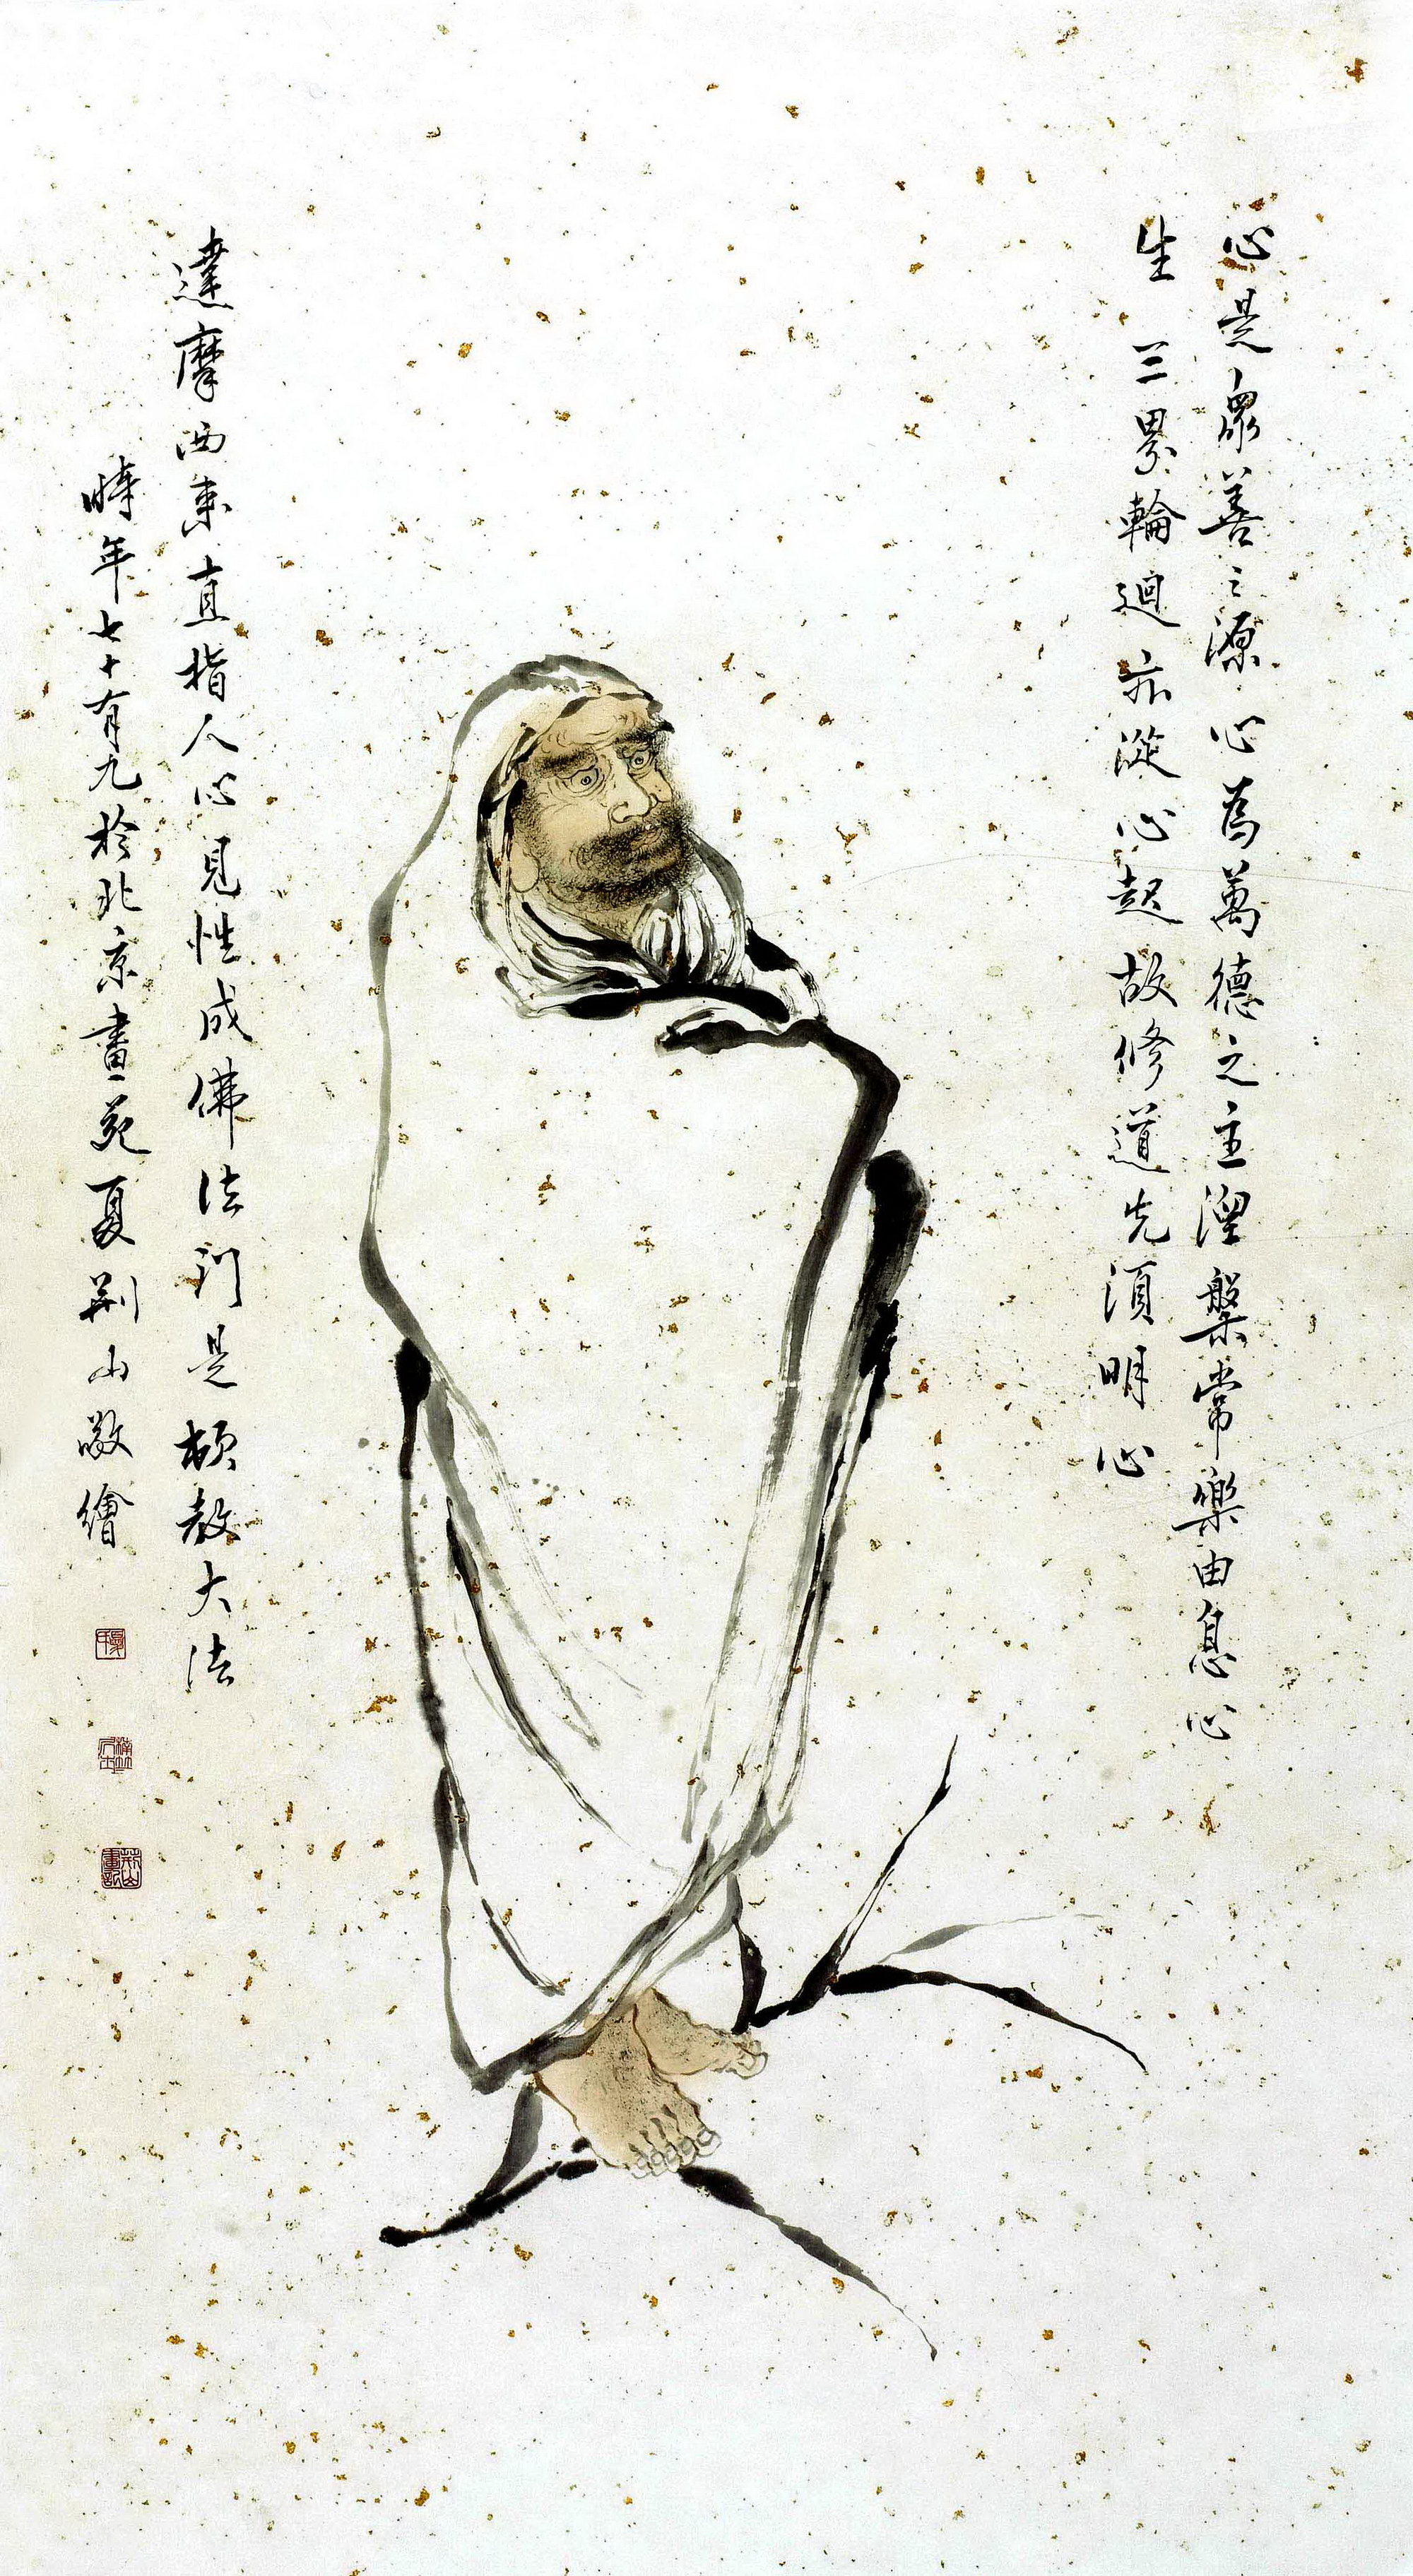 心是眾善之源心為萬德之主涅槃常樂由息心
生三界輪迴亦從心起故修道先須明心
達摩西來直指人心見性成佛法門是頓教大法
時年七十有九於北京畫苑夏荊山敬繪
夏氏
荊山畫記